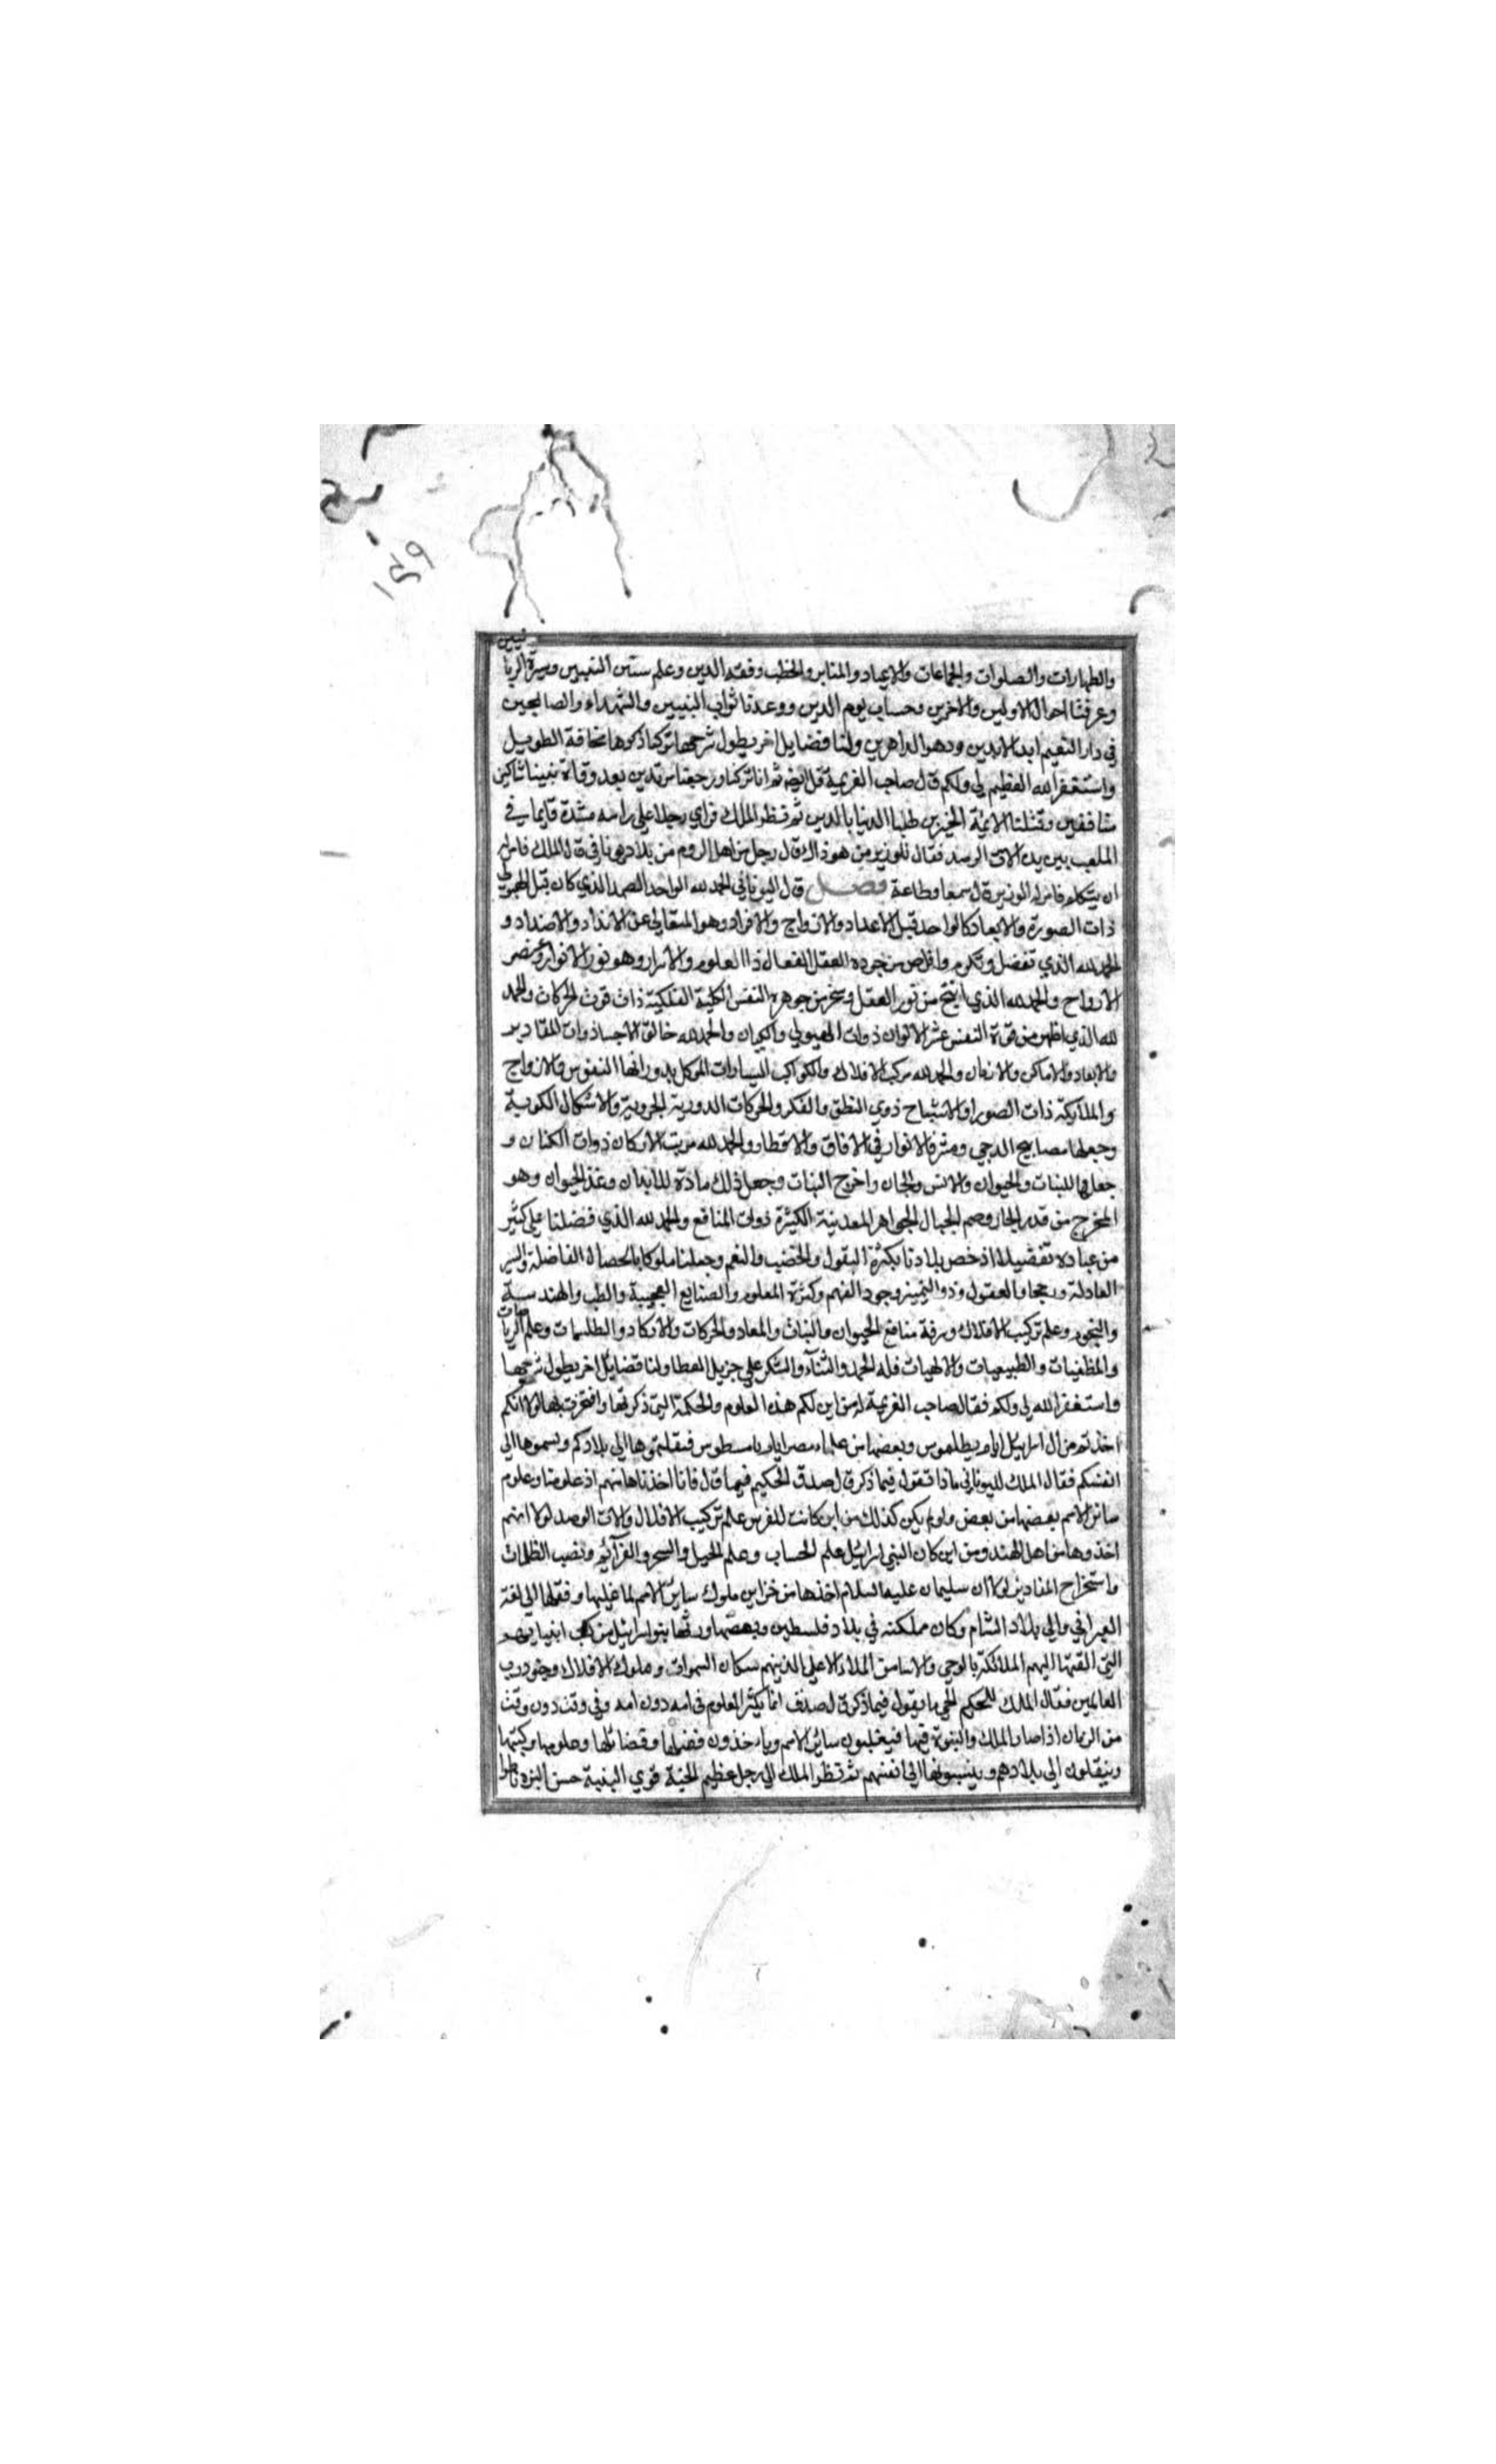 ١٤٩
والطهارات والصلوات والجماعات والاعياد والمنابر والخطب وفقه الدين وعلم سنن النبيين وسيرة الربانيين
وعرفنا احوال الاولين والاخرين وحساب يوم الدين ووعدنا ثواب النبيين والشهداء والصالحين
في دار النعيم ابد الابدين ودهر الداهرين ولنا فضايل اخر يطول شرحها تركنا ذكرها مخافة الطويل
واستغفر الله العظيم لي ولكم قال صاحب العزيمة قل ايضا ثم انا تركنا ورجعنا مرتدين بعد وفاة نبينا شاكين
منافقين وقتلنا الايمة الخيرين طلبا الدنيا بالدين ثم نظر الملك فراي رجلا علي راسه مشدة قايما في
الملعب بين يديه الات الرصد فقال للوزير من هو ذاك قال رجل من اهل الروم من بلاد يونان في قال الملك فامره
ان يتكلم فامره الوزير قال سمعا وطاعة فصل قال اليوناني الحمد لله الواحد الصمد الذي كان قبل الهيولي
ذات الصورة والابعاد كالواحد قبل الاعداد والازواج والافراد وهو المتعالي عن الانداد والاضداد و
الحمد لله الذي تفضل وتكرم وافاض من جوده العقل الفعال ذا العلوم والاسرار وهو نور الانوار وعنصر
الارواح والحمد لله الذي انتج من نور العقل وسخر من جوهره النفس الكلية الفلكية ذات قوت الحركات والحمد
لله الذي اظهر من قوة النفس عنصر الاكوان ذوات الهيولي والكيان والحمد لله خالق الاجساد ذوات المقادير
والابعاد والاماكن والازمان والحمد لله مركب الافلاك والكواكب السيارات الموكل بدورانها النفوس والازواج
والملايكة ذات الصور والاشباح ذوي النطق والفكر والحركات الدورية الجروية والاشكال الكروية
وجعلها مصابيح الدجي ومشرق الانوار في الافاق والاقطار والحمد لله مرتب الاركان ذوات الكنان و
جعلها للنبات والحيوان والانس والجان واخرج النبات وجعل ذلك مادة للابدان وغذ الحيوان وهو
المخرج من قعر البحار وصم الجبال الجواهر المعدنية الكثيرة ذوات المنافع والحمد لله الذي فضلنا علي كثير
من عباده تفضيلا اذ خص بلادنا بكثرة البقول والخصب والنعم وجعلنا ملوكا بالخصال الفاضلة والسير
العادلة ورجحا العقول وذو التمييز وجود الفهم وكثرة العلوم والصنايع العجيبة والطب والهندسة
والنجوم وعلم تركيب الافلاك ومعرفة منافع الحيوان والنبات والمعادن والحركات والات الارصاد والطلسمات وعلم الرياضات
والمنطقيات والطبيعيات والالهيات فله الحمد والثناء والشكر علي جزيل العطا ولنا فضايل اخر يطول شرحها
واستغفر الله لي ولكم فقال صاحب العزيمة له من اين لكم هذه العلوم والحكمة التي ذكرتها وافتخرت بها لولا انكم
اخذتم من ال اسرائيل ايام بطلميوس وبعضها من علماء مصر ايام بامسطيوس فنقلتموها الي بلادكم ونسبتموها الي
انفسكم فقال الملك لليوناني ماذا تقول فيما ذكر قال صدق الحكيم فيما قال فانا اخذناها منهم اذ علومنا وعلوم
سائر الامم بعضها من بعض ولو لم يكن كذلك من اين كانت للفرس علم تركيب الافلاك والات الرصد لولا انهم
اخذوها من اهل الهند ومن اين كان لبني اسرائيل علم الحساب وعلم الحيل والسحر والعزائم ونصب الطلسمات
واستخراج المقادير لولا ان سليمان عليه السلام اخذها من خزاين ملوك سائر الامم لما غلبها ونقلها الي لغة
العبراني والي بلاد الشام وكان مملكته في بلاد فلسطين وبعضها ورثها بنو اسرائيل من كتب انبيائهم
التي القتها اليهم الملائكة بالوحي والالهام من الملاء الاعلي الذين هم سكان السموات وملوك الافلاك وجنود رب
العالمين فقال الملك للحكيم الجني ما يقول فيما ذكر قال صدق انما يكثر العلوم في امة دون امة وفي وقت دون وقت
من الزمان اذا صار الملك والنبوة فيها فيغلبون سائر الامم وياخذون فضلها وفضائلها وعلومها وكتبها
وينقلون الي بلادهم وينسبونها الي انفسهم ثم نظر الملك الي رجل عظيم اللحية قوي البنية حسن البزة ناظرا